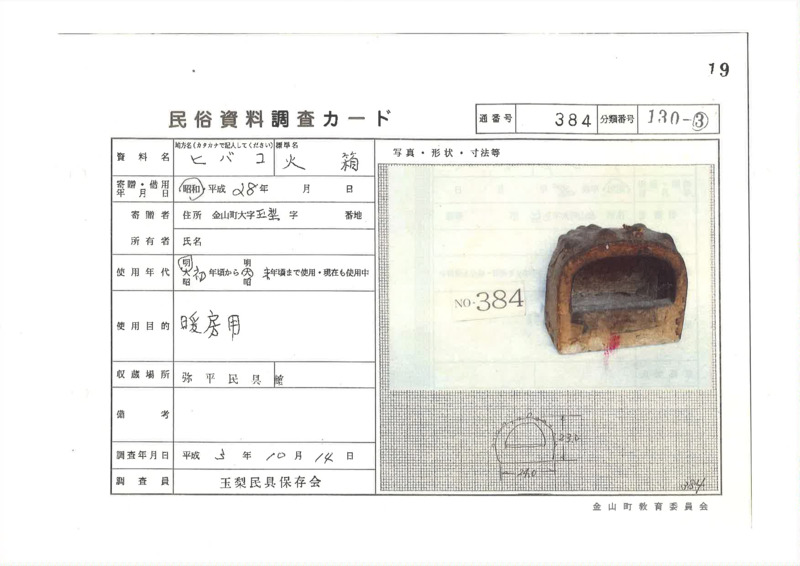 19
民俗資料調査カード
通番号 384 分類番号 130-③
資料名 地方名(カタカナで記入してください) ヒバコ 標準名 火箱
寄贈・借用年月日 昭和・平成 28年 月 日
寄贈者 住所 金山町大字玉梨 字 番地
所有者 氏名
使用年代 明大昭 初年頃から 明大昭 末年頃まで使用・現在も使用中
使用目的 暖房用
収蔵場所 弥平民具館
備考
調査年月日 平成 3年 10月 14日
調査員 玉梨民具保存会
写真・形状・寸法等
NO.384
23.0
384
金山町教育委員会